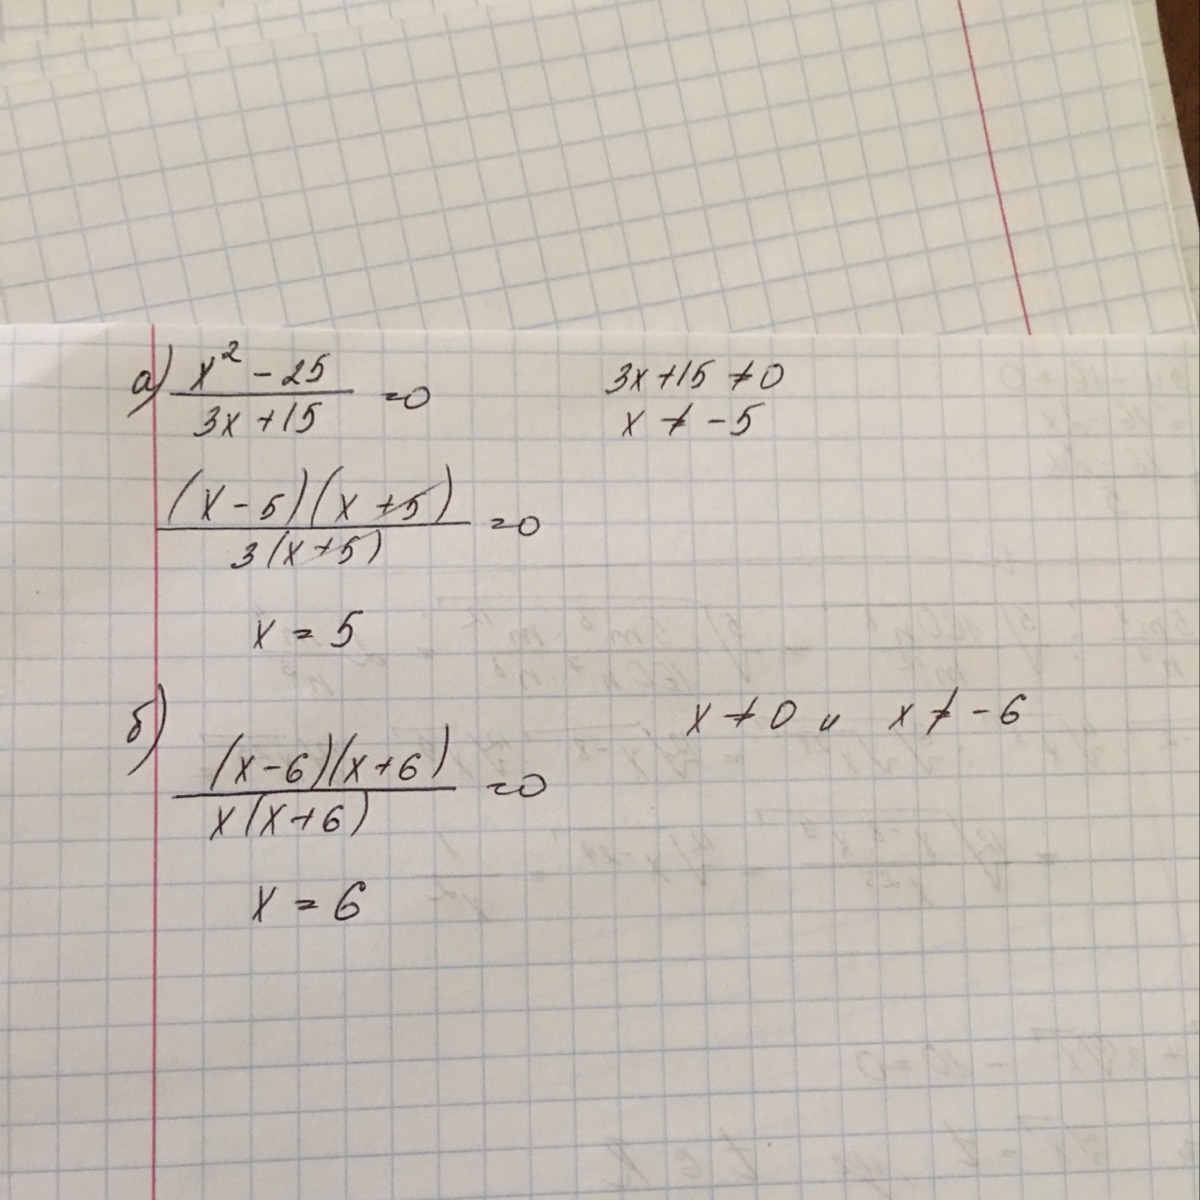 а) x² - 25 / 3x + 15 = 0
3x + 15 ≠ 0
x ≠ -5
(x - 5)(x + 5) / 3(x + 5) = 0
x = 5
б) (x - 6)(x + 6) / x(x + 6) = 0
x ≠ 0 и x ≠ -6
x = 6